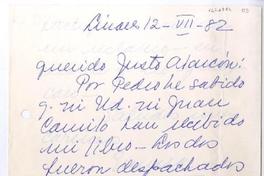 Linares 12-VII-82
querido Justo Alarcón:
Por Pedro he sabido
q. ni Ud. ni Juan
Camilo han recibido
mi libro - Los dos
fueron despachados